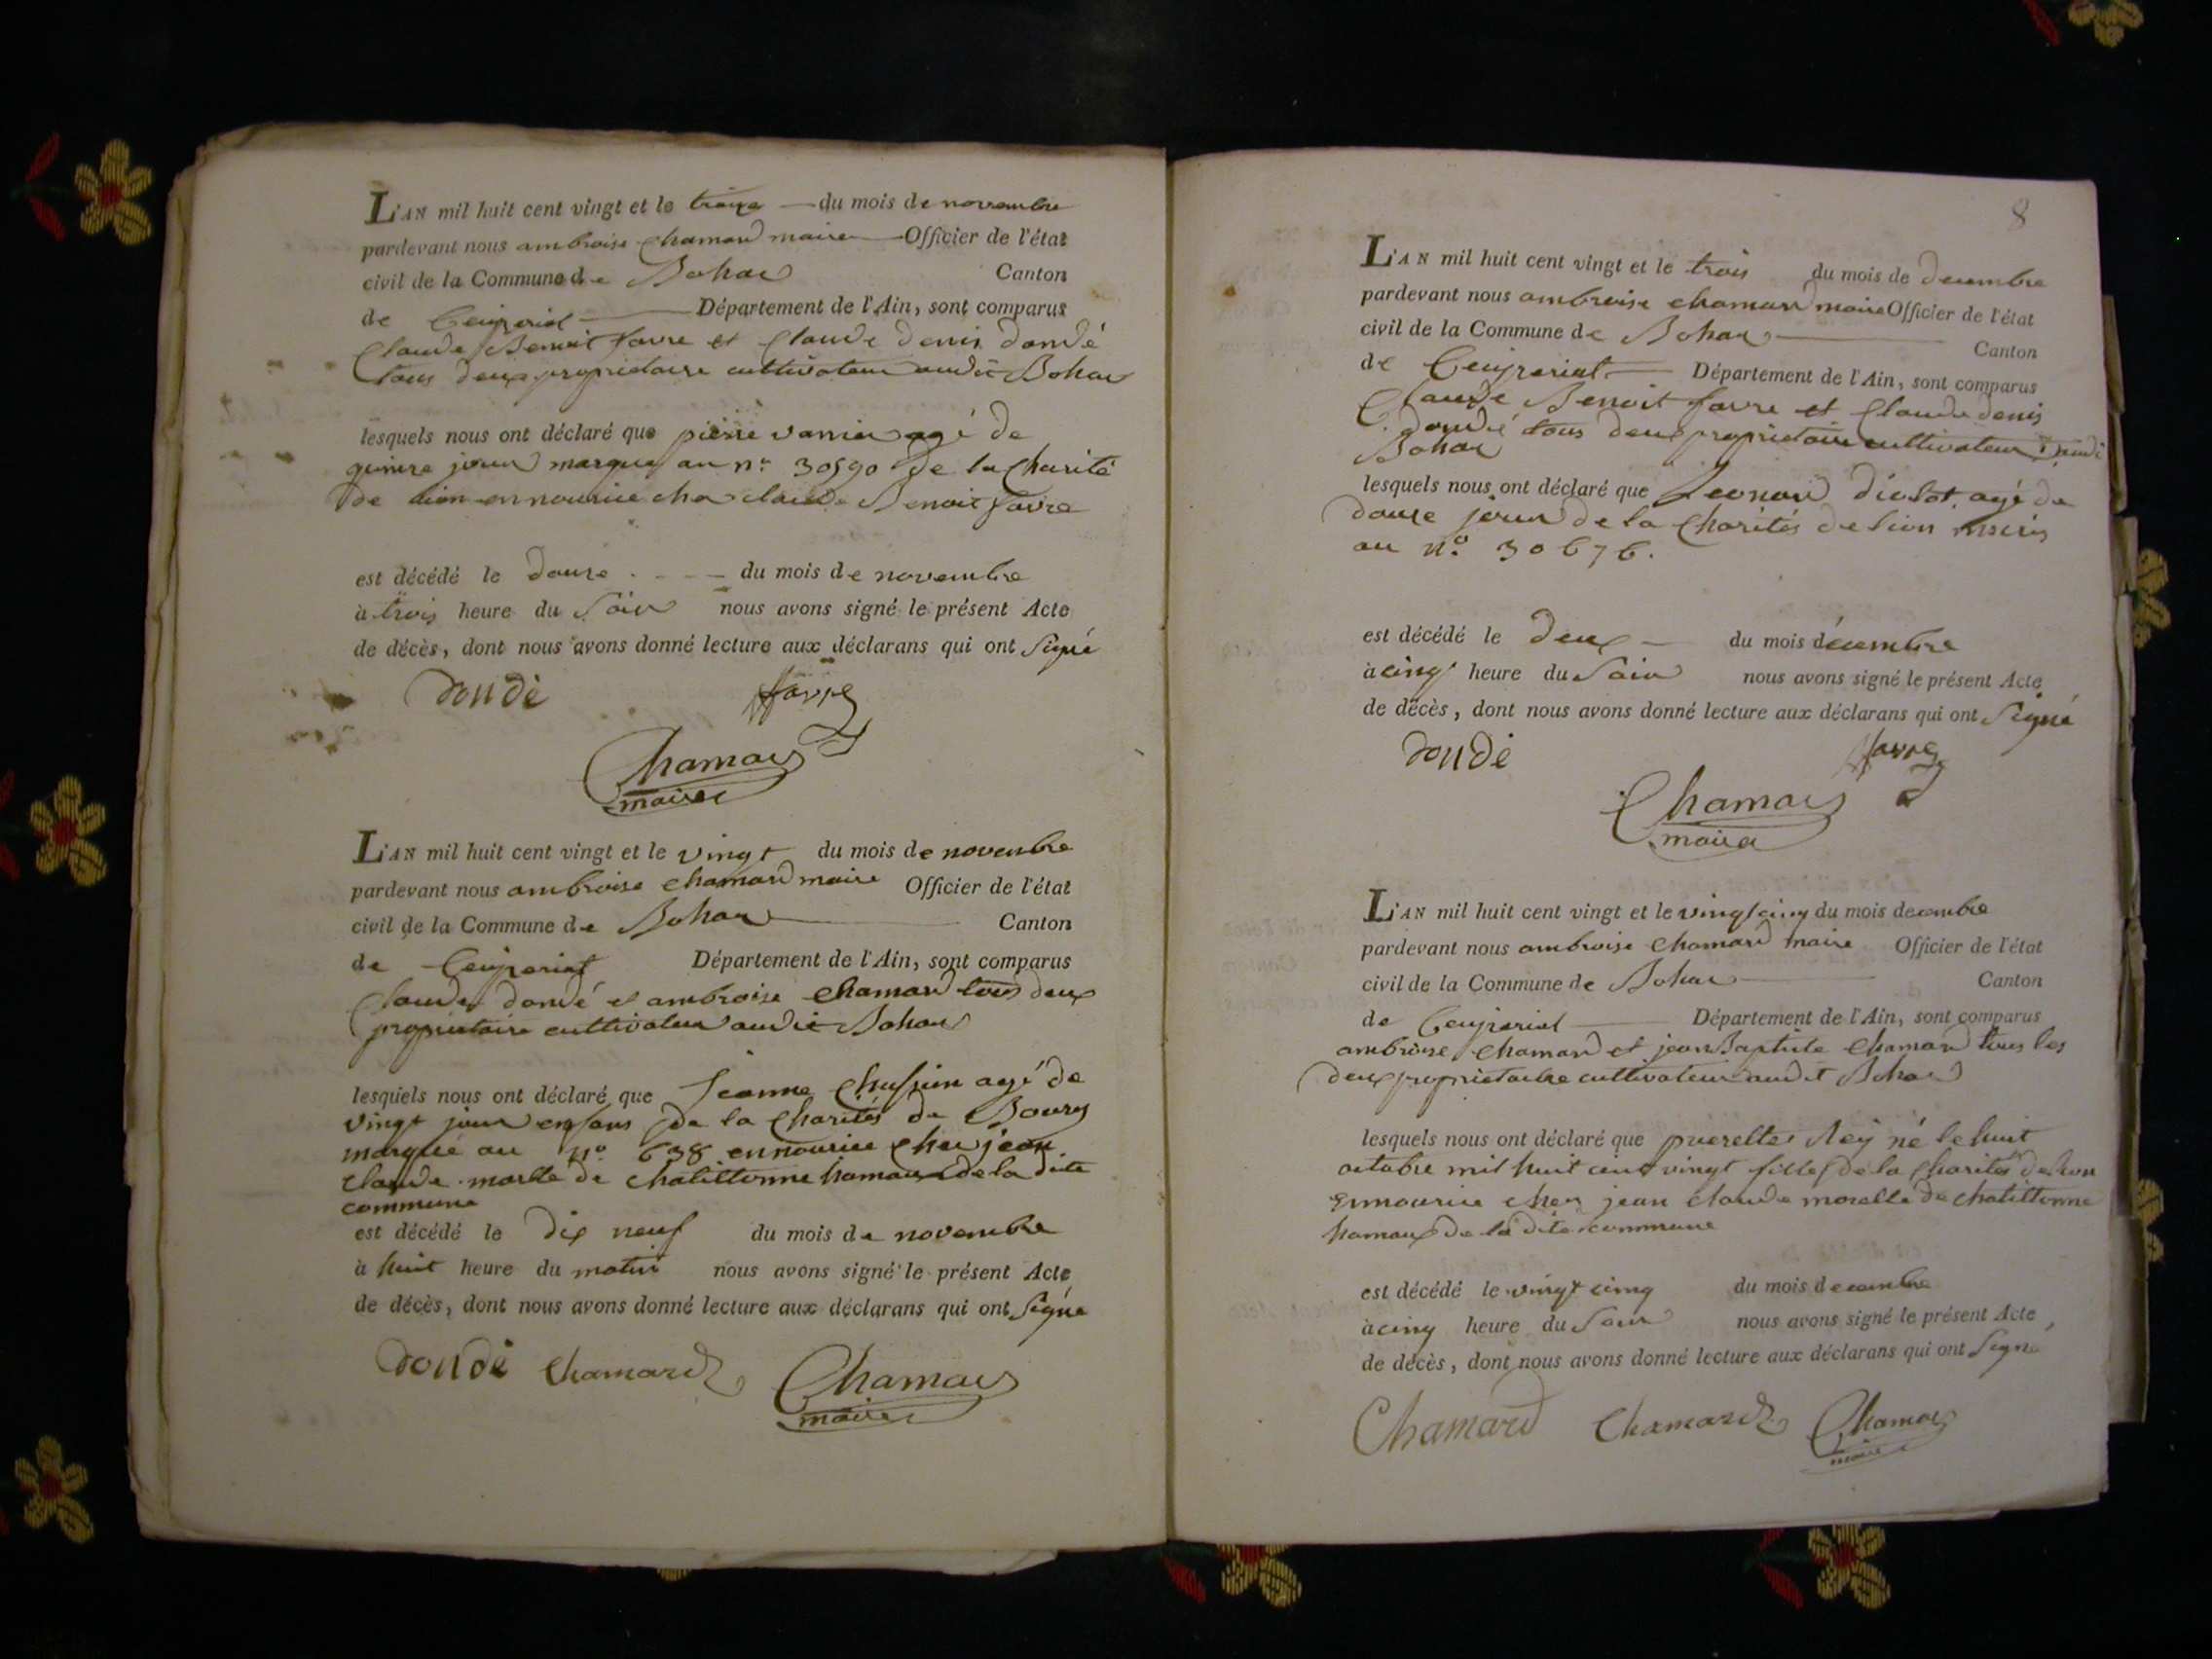 L'AN mil huit cent vingt et le treize du mois de novembre
pardevant nous ambroise chamard maire Officier de l'état
civil de la Commune de Bohas Canton
de Ceyzeriat Département de l'Ain, sont comparus
Claude Benoit favre et Claude denis dondé
tous deux proprietaire cultivateur audit Bohas
lesquels nous ont déclaré que pierre vanier agé de
quinze jours marque au n° 30590 de la Charité
de lion en nourice ches claude Benoit favre
est décédé le douze du mois de novembre
à trois heure du Soir nous avons signé le présent Acte
de décès, dont nous avons donné lecture aux déclarans qui ont Signé
Dondé favre
Chamard
maire
L'AN mil huit cent vingt et le vingt du mois de novembre
pardevant nous ambroise chamard maire Officier de l'état
civil de la Commune de Bohas Canton
de Ceyzeriat Département de l'Ain, sont comparus
Claude dondé et ambroise chamard tous deux
proprietaire cultivateur audit Bohas
lesquels nous ont déclaré que Jeanne agé de
vingt jours enfans de la Charités de Bourg
marqué au n° 638 en nourice ches jean
claude de chatillonne hamaux de la dite
commune
est décédé le dix neuf du mois de novembre
à huit heure du matin nous avons signé le présent Acte
de décès, dont nous avons donné lecture aux déclarans qui ont Signé
Dondé Chamard Chamard
maire
8
L'AN mil huit cent vingt et le trois du mois de decembre
pardevant nous ambroise chamard maire Officier de l'état
civil de la Commune de Bohas
Canton
de Ceyzeriat Département de l'Ain, sont comparus
Claude Benoit favre et Claude denis
dondé tous deux proprietaire cultivateur
Bohas
lesquels nous ont déclaré que Leonard agé de
douze jours de la Charités de lion inscris
au n° 30676.
est décédé le deux du mois décembre
à cinq heure du Soir nous avons signé le présent Acte
de décès, dont nous avons donné lecture aux déclarans qui ont Signé
Dondé favre
Chamard
maire
L'AN mil huit cent vingt et le vingt cinq du mois decembre
pardevant nous ambroise chamard maire Officier de l'état
civil de la Commune de Bohas Canton
de Ceyzeriat Département de l'Ain, sont comparus
ambroise chamard et jean Baptiste chamard tous les
deux proprietaire cultivateur audit Bohas
lesquels nous ont déclaré que Rey né le huit
octobre mil huit cent vingt fille de la Charités de lion
en nourice ches jean claude morelle de chatillonne
hamaux de la dite commune
est décédé le vingt cinq du mois decembre
à cinq heure du Soir nous avons signé le présent Acte
de décès, dont nous avons donné lecture aux déclarans qui ont Signé
Chamard Chamard Chamard
maire